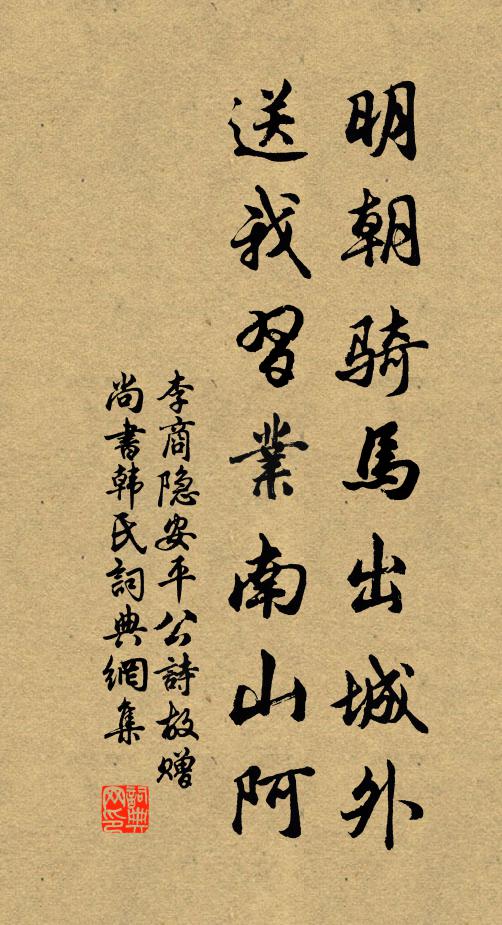 明朝騎馬出城外
送我習業南山阿
李商隐安平公詩故赠
尚書韩氏詞典網集
詞典網印